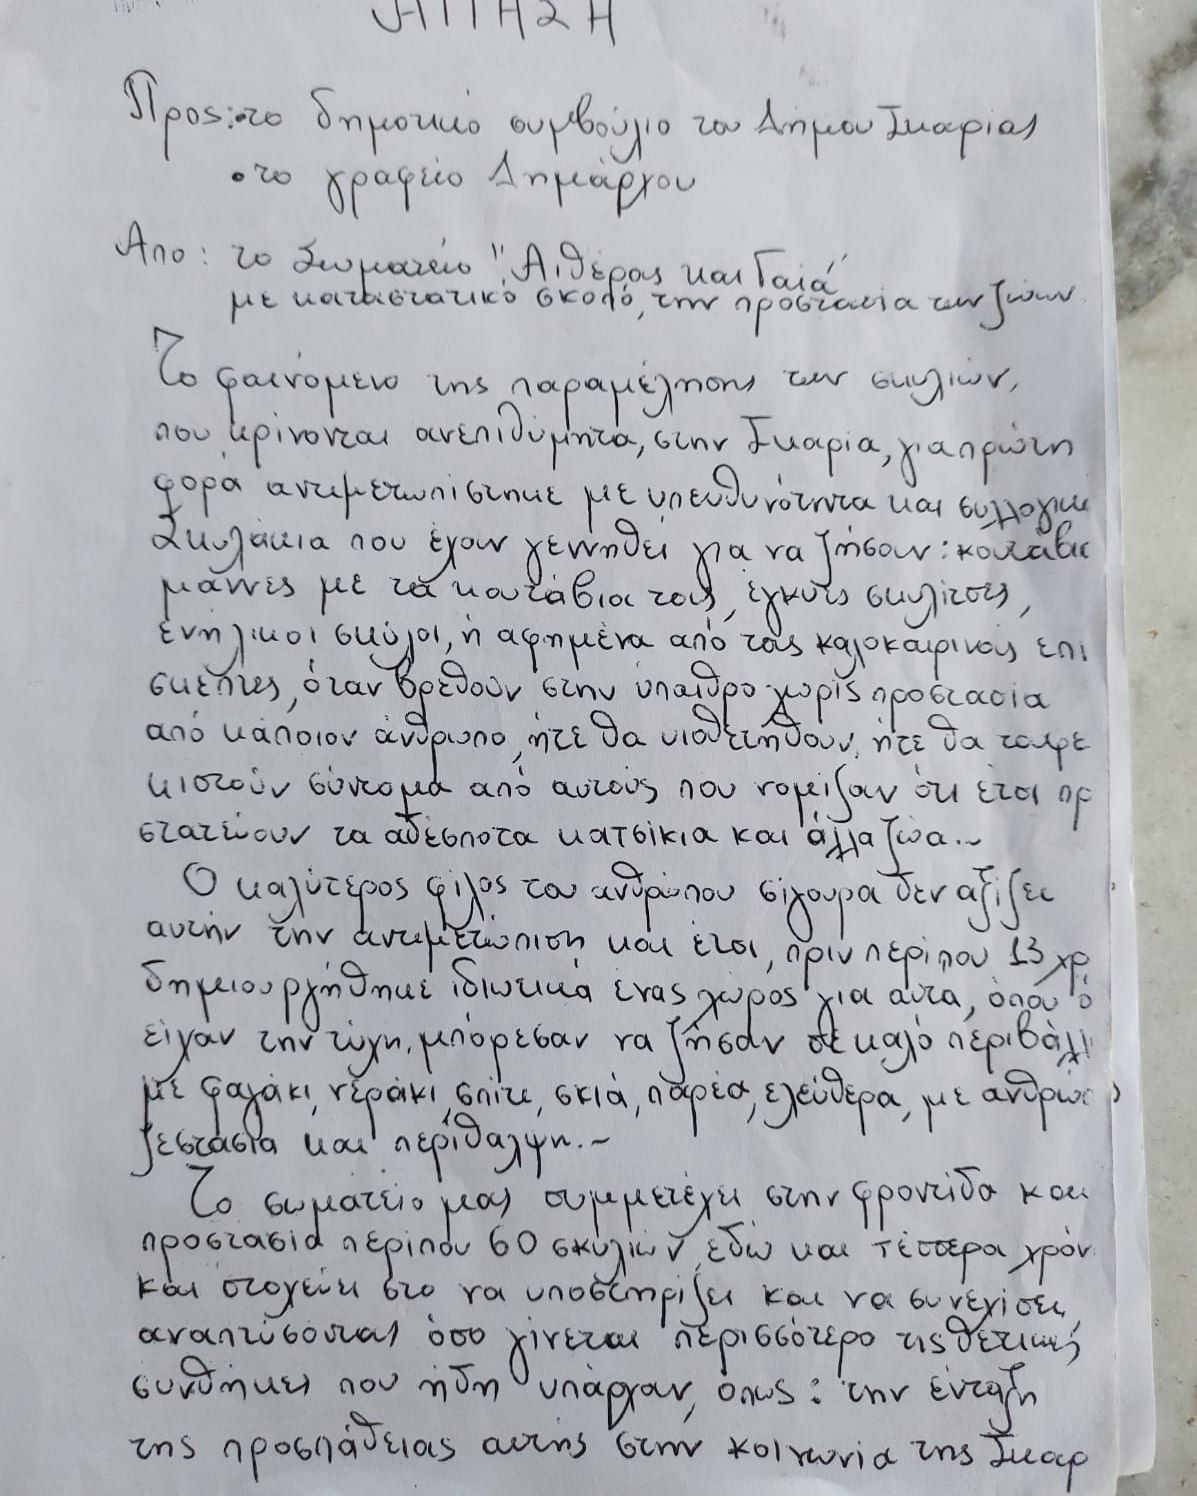 ΑΙΤΗΣΗ
Προς: • το δημοτικό συμβούλιο του Δήμου Ικαρίας
• το γραφείο Δημάρχου
Απο: το Σωματείο "Αιθέρας και Γαιά"
με καταστατικό σκοπό, την προστασία των ζώων
Το φαινόμενο της παραμέλησης των σκυλιών,
που κρίνονται ανεπιθύμητα, στην Ικαρία, για πρώτη
φορά αντιμετωπίστηκε με υπευθυνότητα και συλλογικ
Σκυλάκια που έχουν γεννηθεί για να ζήσουν: κουτάβι
μάννες με τα κουτάβια τους, έγκυες σκυλίτσες,
ενήλικοι σκύλοι, ή αφημένα από τους καλοκαιρινούς επι
σκέπτες, όταν βρεθούν στην ύπαιθρο χωρίς προστασία
από κάποιον άνθρωπο, ήτε θα υιοθετηθούν, ήτε θα τουφε
κιστούν σύντομα από αυτούς που νομίζαν ότι έτσι πρ
στατεύουν τα αδέσποτα κατσίκια και άλλα ζώα.~
Ο καλύτερος φίλος του ανθρώπου σίγουρα δεν αξίζει
αυτήν την αντιμετώπιση και έτσι, πριν περίπου 13 χρ
δημιουργήθηκε ιδιωτικά ένας χώρος για αυτα, όπου ό
είχαν την τύχη, μπόρεσαν να ζήσαν σε καλό περιβάλλ
με φαγάκι, νεράκι, σπίτι, σκιά, παρέα, ελεύθερα, με ανθρώπ
ζεστασιά και περίθαλψη.~
Το σωματείο μας συμμετέχει στην φροντίδα και
προστασία περίπου 60 σκυλιών, εδώ και τέσσερα χρόν
και στοχεύει στο να υποστηρίζει και να συνεχίσει,
αναπτύσοντας όσο γίνεται περισσότερο τις θετικές
συνθήκες που ήδη υπάρχαν, όπως: την ένταξη
της προσπάθειας αυτής στην κοινωνία της Ικαρ